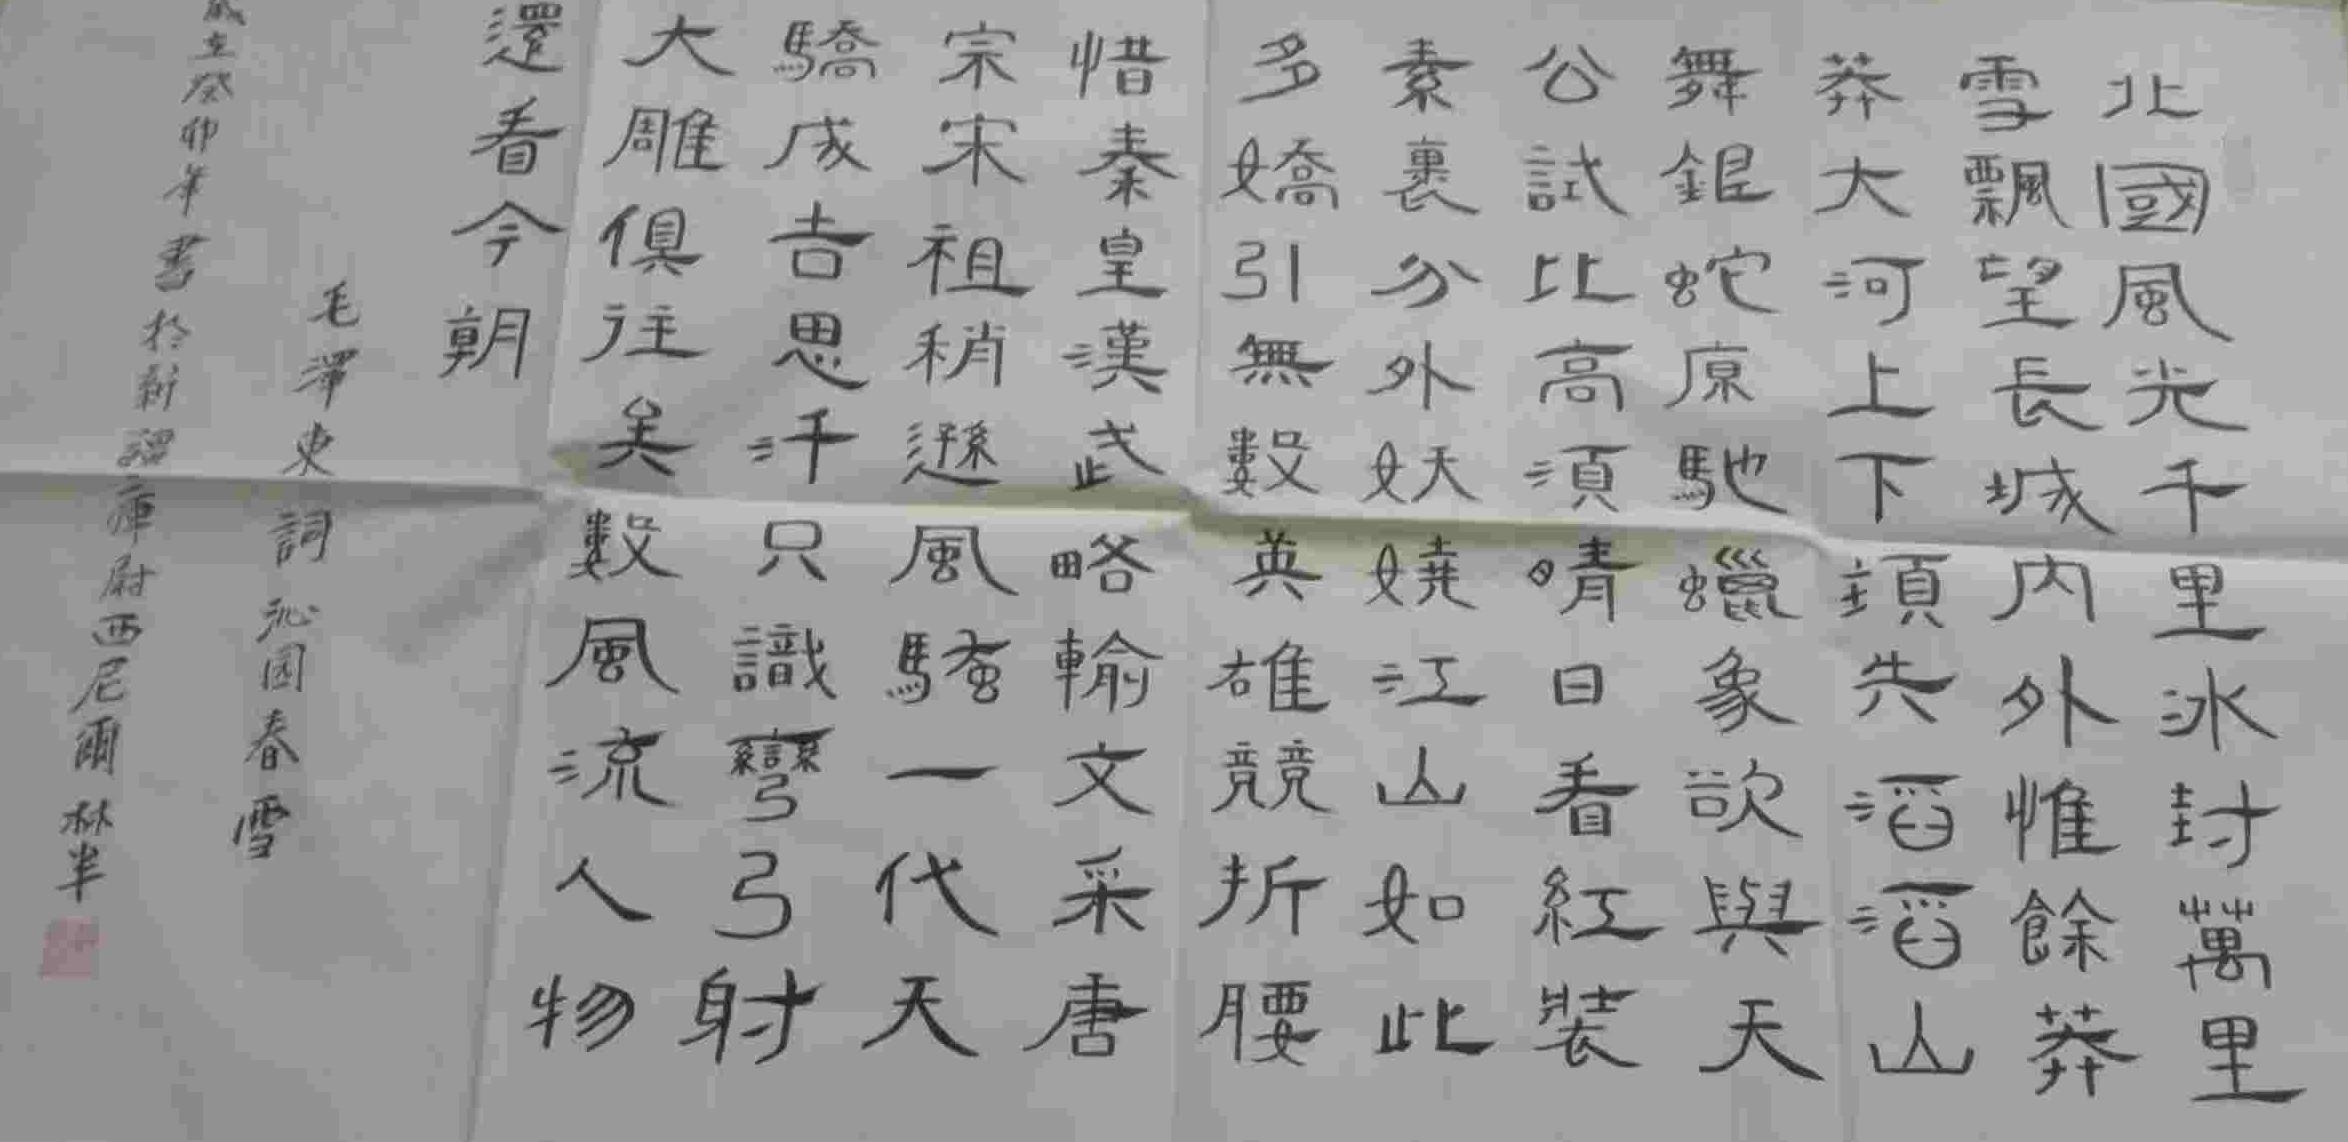 北國風光千里冰封萬里
雪飄望長城內外惟餘莽
莽大河上下頓失滔滔山
舞銀蛇原馳蠟象欲與天
公試比高須晴日看紅裝
素裹分外妖嬈江山如此
多嬌引無數英雄競折腰
惜秦皇漢武略輸文采唐
宗宋祖稍遜風騷一代天
驕成吉思汗只識彎弓射
大雕俱往矣數風流人物
還看今朝
毛澤東詞沁園春雪
歲在癸卯年書於新疆庫尉西尼爾林半